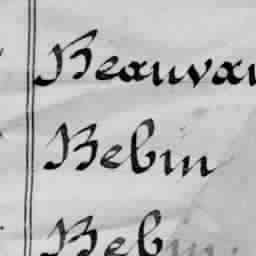 Beauvau
Bebin
Bebin